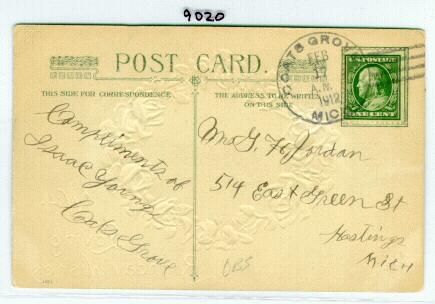 9020
POST CARD.
THIS SIDE FOR CORRESPONDENCE
THE ADDRESS TO BE WRITTEN
ON THIS SIDE
COATS GROVE
FEB
A.M.
1912
MICH
ONE CENT
Compliments of
Isaac Young
Coats Grove
G. H. Jordan
514 East Green St
Hastings
Mich